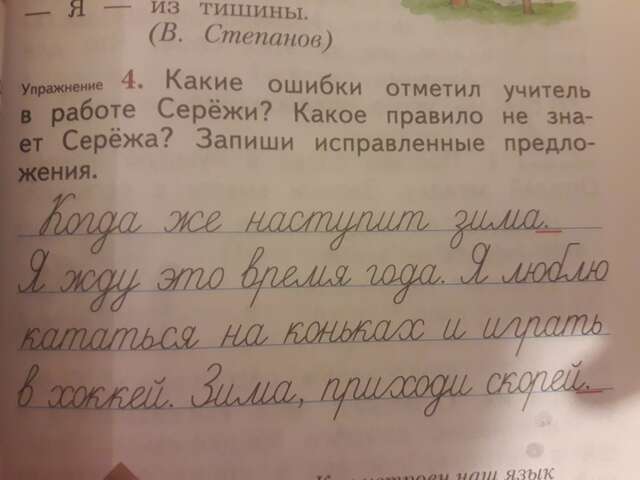 — Я — из тишины.
(В. Степанов)
Упражнение 4. Какие ошибки отметил учитель
в работе Серёжи? Какое правило не зна-
ет Серёжа? Запиши исправленные предло-
жения.
Когда же наступит зима.
Я жду это время года. Я люблю
кататься на коньках и играть
в хоккей. Зима, приходи скорей.
наш язык